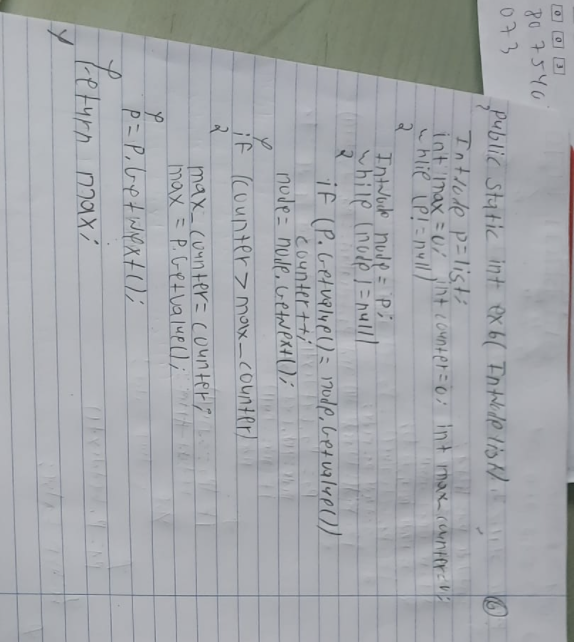 0 0 3
807540
073
public static int ex6(IntNode list)
6
{
IntNode p=list;
int max=0; int counter=0; int max_counter=0;
while (p!=null)
{
IntNode node=p;
while (node!=null)
{
if (p.GetValue()=node.GetValue())
counter++;
node=node.GetNext();
}
if (counter>max_counter)
{
max_counter=counter;
max=p.GetValue();
}
p=p.GetNext();
}
return max;
}